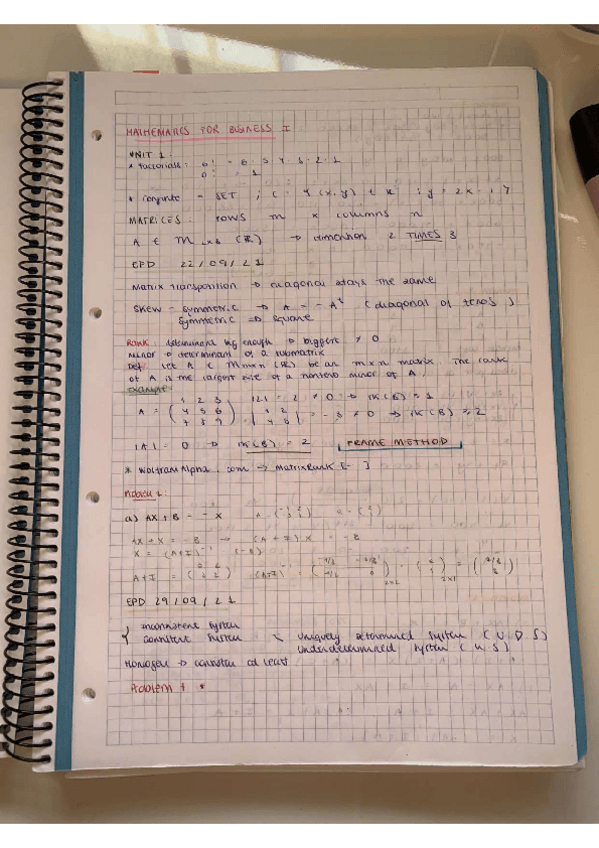 MATHEMATICS FOR BUSINESS I
UNIT 1:
* Factorials: 6! = 6 · 5 · 4 · 3 · 2 · 1
0! = 1
* conjunto = SET
MATRICES: rows m × columns n
A ∈ M 2x3 (R) → dimension 2 TIMES 3
EPD 22/09/21
Matrix transposition → diagonal stays the same
Skew-symmetric → A = -Aᵗ (diagonal of zeros)
Symmetric ⇒ square
Rank: determinant big enough → biggest ≠ 0
Minor → determinant of a submatrix
Def. Let A ∈ Mmxn (R) be an m×n matrix. The rank
of A is the largest size of a nonzero minor of A.
Example:
1 2 3 |2| = 2 ≠ 0 → rk(B) ≥ 1
A = ( 4 5 6 ) | 1 2 | = -3 ≠ 0 → rk(B) ≥ 2
7 8 9 | 4 5 |
|A| = 0 → rk(B) = 2 FRAME METHOD
* WolframAlpha.com → MatrixRank [ ]
Problem 1:
a) AX + B = -X
AX + X = -B → (A + I) X = -B
X = (A+I)⁻¹ (-B)
A+I =
EPD 29/09/21
inconsistent system
consistent system Uniquely determined system (UDS)
underdetermined system (US)
Homogen → consisten at least
Problem 1 *